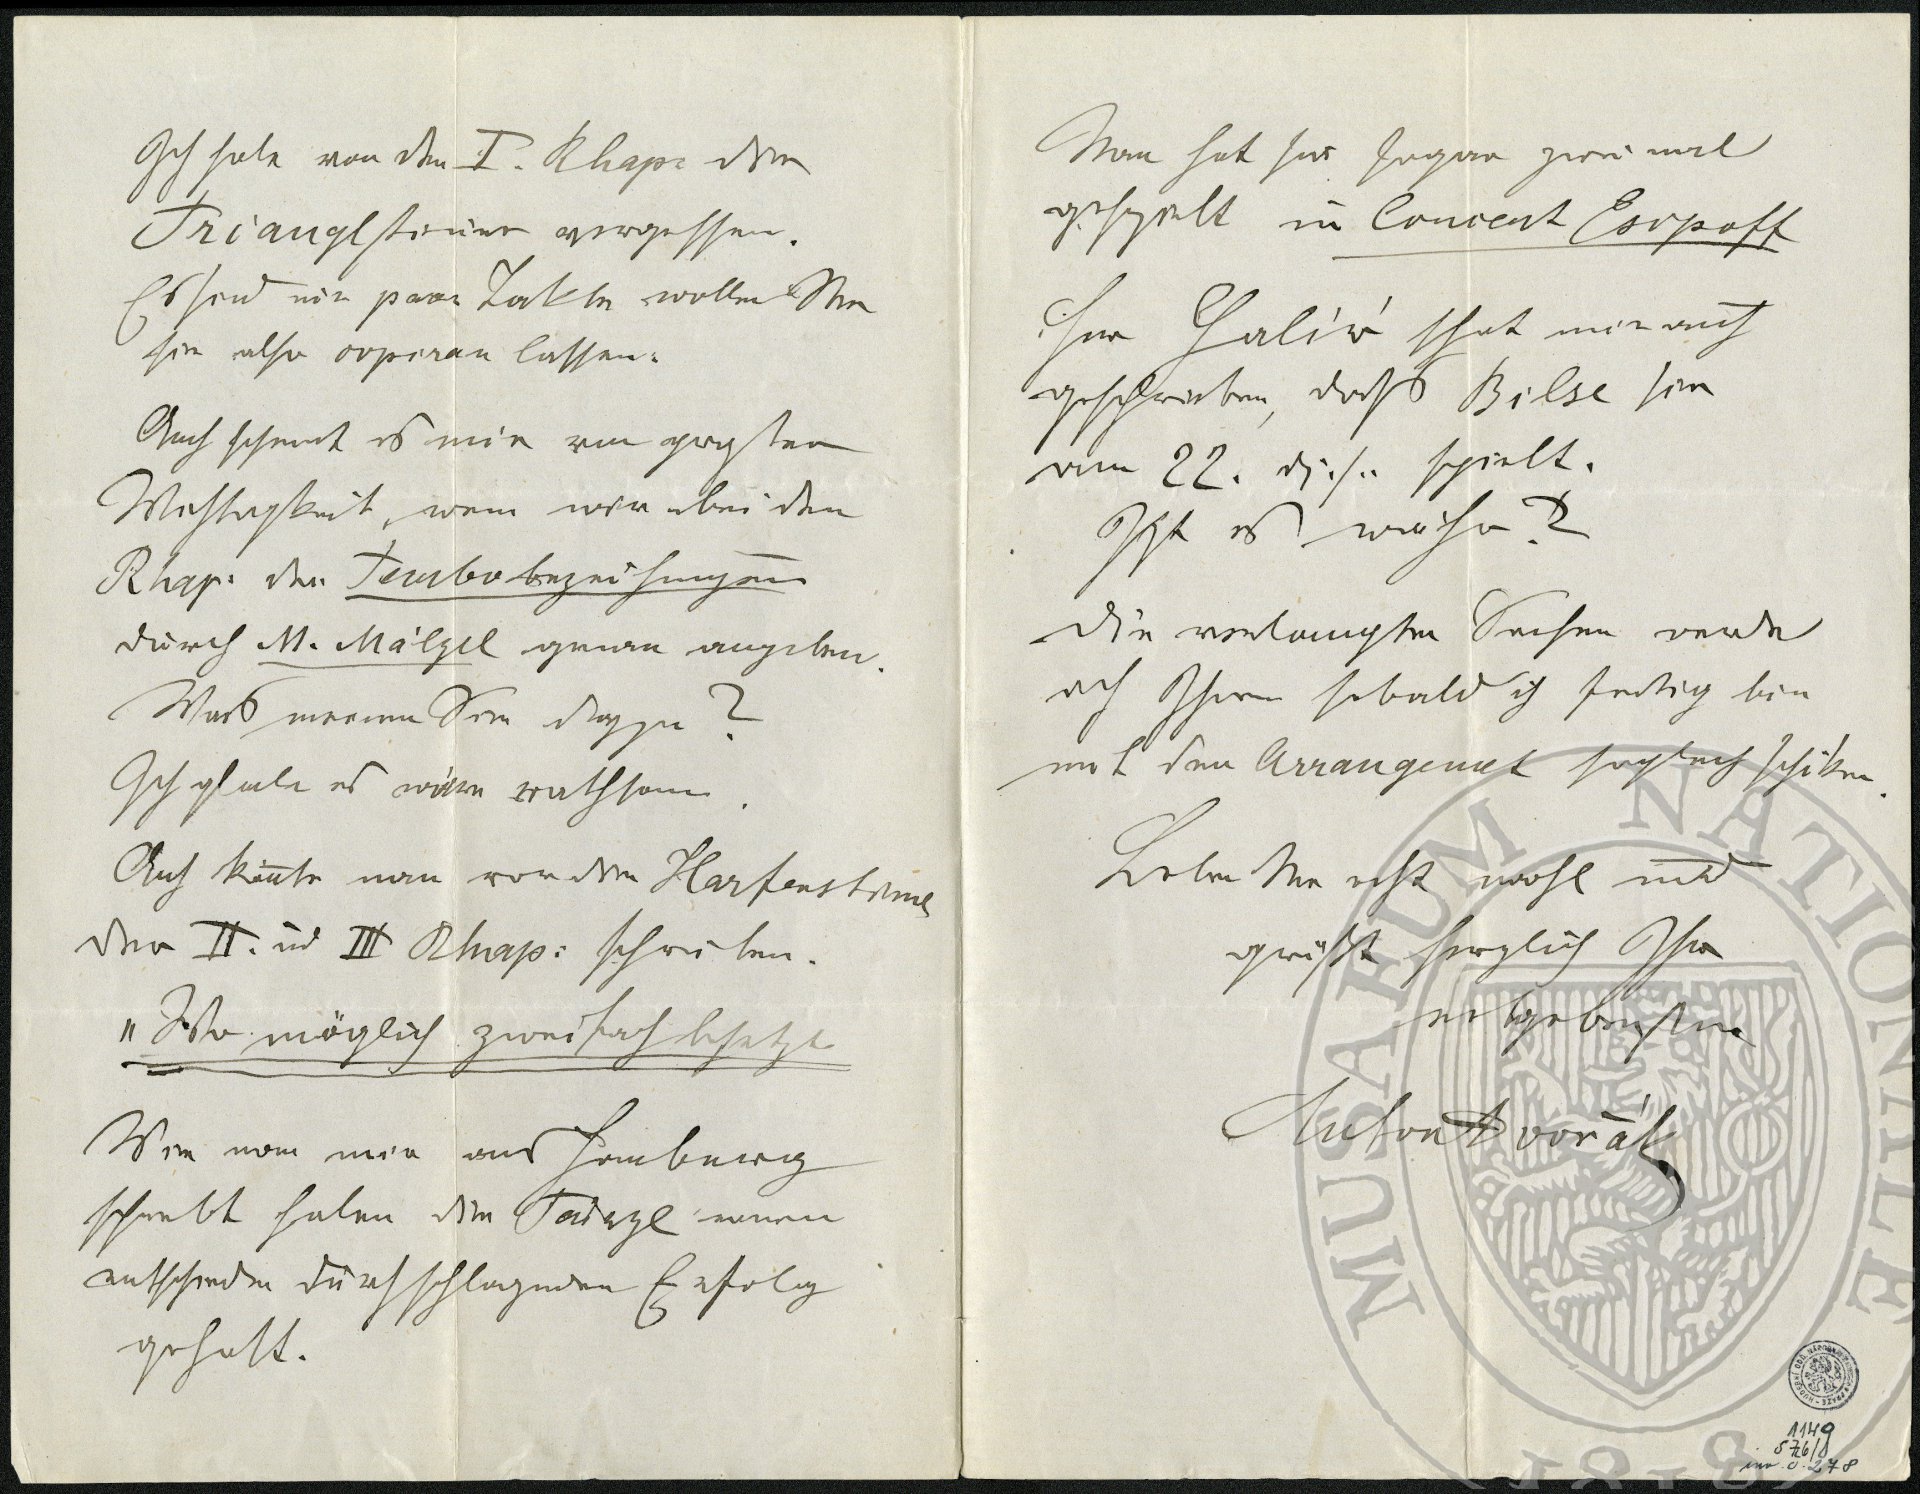 Ich habe von der I. Rhap: die
Trianglstimme vergessen.
Es sind nur paar Takte wollen Sie
sie also copiren lassen.
Auch scheint es mir von
Wichtigkeit, wenn wir bei den
Rhap: die Tembobezeichungen
durch M. Mälzel genau angeben.
Was meinen Sie dazu?
Ich glaube es wäre rathsam.
Auch könnte man vor die Harfenstimme
der II. und III Rhap: schreiben.
"Wo möglich zweifach besetzt
Wie man mir aus Hamburg
schreibt haben die Tänze einen
entschieden durchschlagenden Erfolg
gehabt.
Man hat sie sogar zweimal
gespielt in Concert Esipoff
Herr hat mir auch
geschrieben, dass Bilse sie
am 22. d. spielt.
Ist es wahr?
Die verlangten Sachen werde
ich Ihnen sobald ich fertig bin
mit den Arrangemet sogleich schiken.
Leben Sie recht wohl und
grüsst herzlich Ihr
ergebenster
Anton Dvořák
MUSAEUM NATIONALE
1818
1149
576/
inv. č. 278